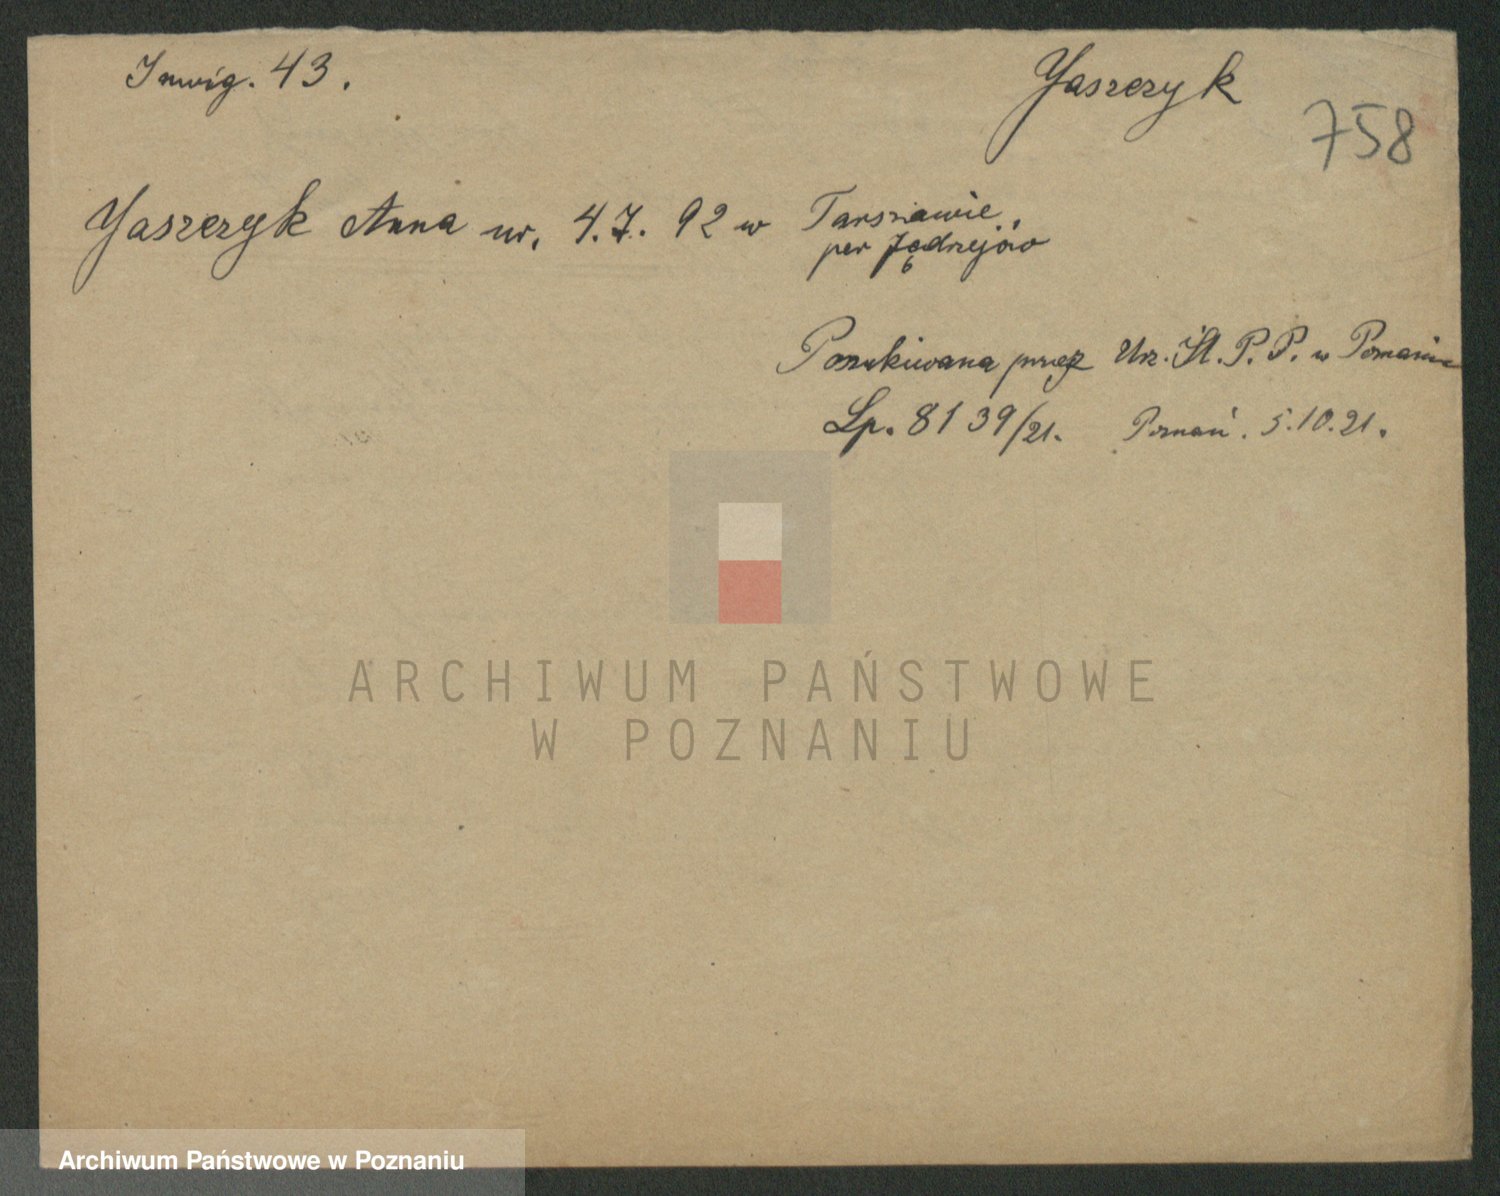 Inwig. 43.
Jaszczyk
758
Jaszczyk Anna ur. 4.7. 92 w Tarszawie,
per Jędrzejów
Poszukiwana przez Urz. Śl. P. P. w Poznaniu
Lp. 8139/21. Poznań. 5.10.21.
ARCHIWUM PAŃSTWOWE
W POZNANIU
Archiwum Państwowe w Poznaniu